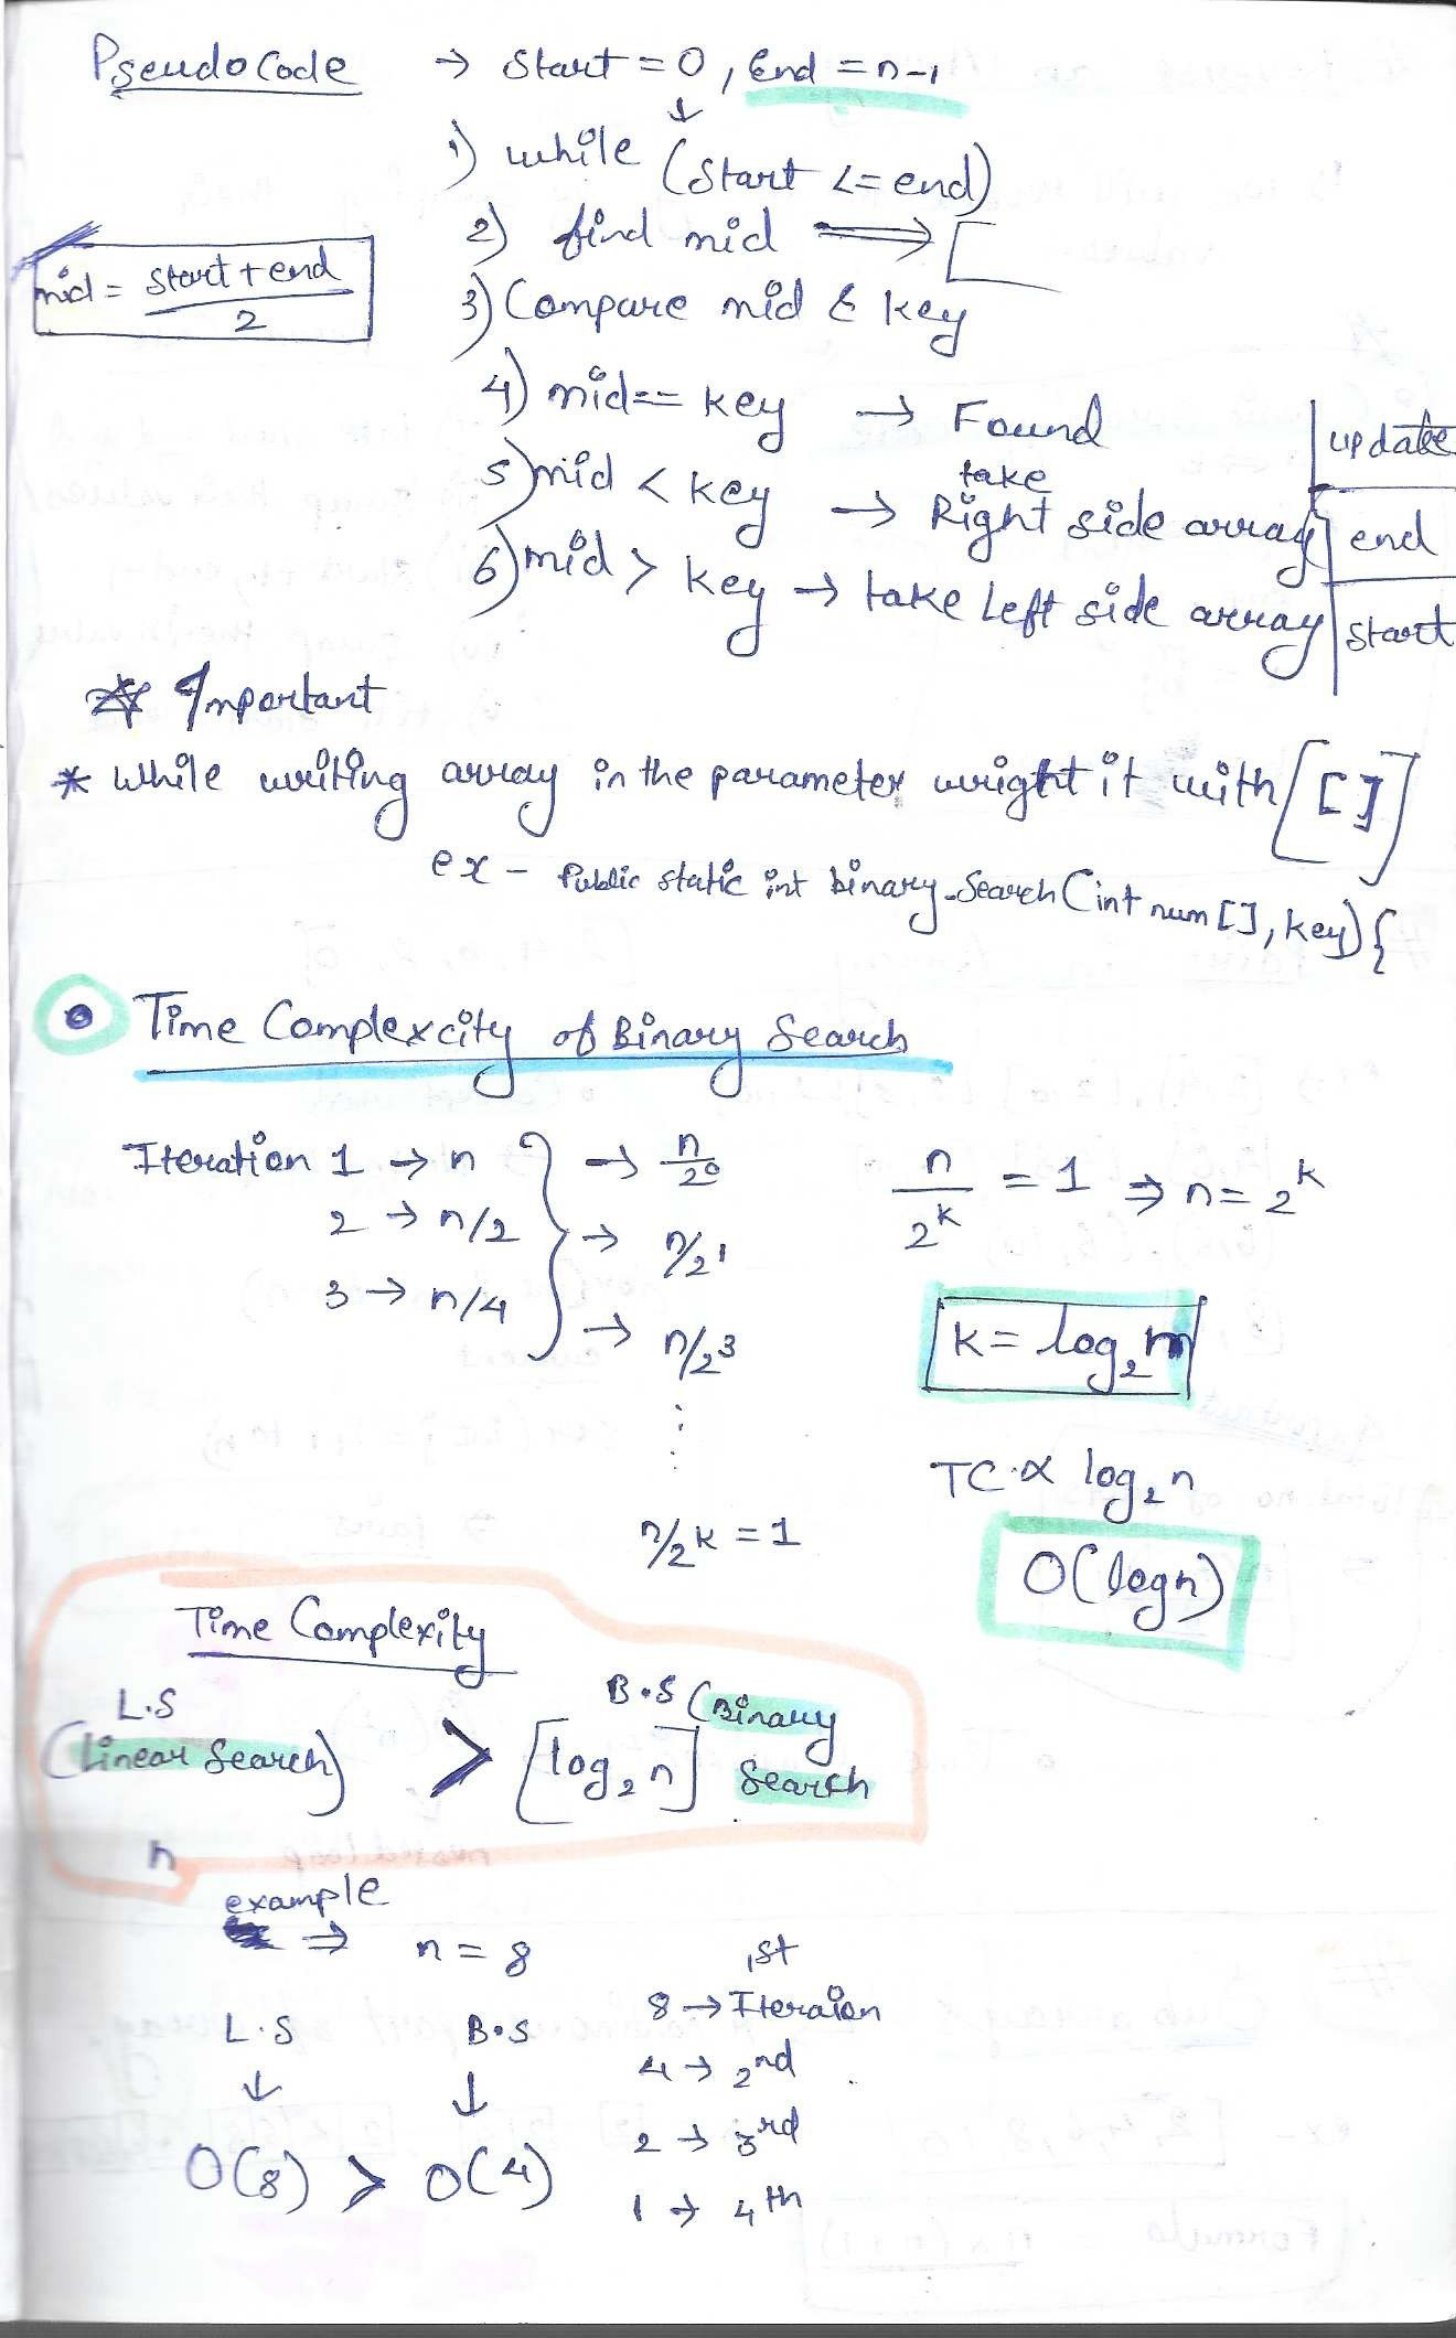 Pseudocode → Start = 0, End = n-1
↓
1) while (Start <= end)
2) find mid ⟹ [
mid = start + end / 2
3) Compare mid & key
4) mid == key → Found
5) mid < key → take Right side array
6) mid > key → take Left side array
update
end
start
☆ Important
* while writing array in the parameter wright it with [ [ ] ]
ex - Public static int binary-Search (int num [], key) {
• Time Complexcity of Binary Search
Iteration 1 → n } → n/2⁰
2 → n/2 → n/2¹
3 → n/4 → n/2³
⋮
n/2k = 1
n/2ᵏ = 1 ⇒ n = 2ᵏ
k = log₂n
TC ∝ log₂n
O(logn)
Time Complexity
L.S B.S (Binary
(Linear Search) > [log₂n] Search
n
example
⇒ n = 8
L.S B.S
↓ ↓
O(8) > O(4)
1st
8 → Iteraion
4 → 2nd
2 → 3rd
1 → 4th